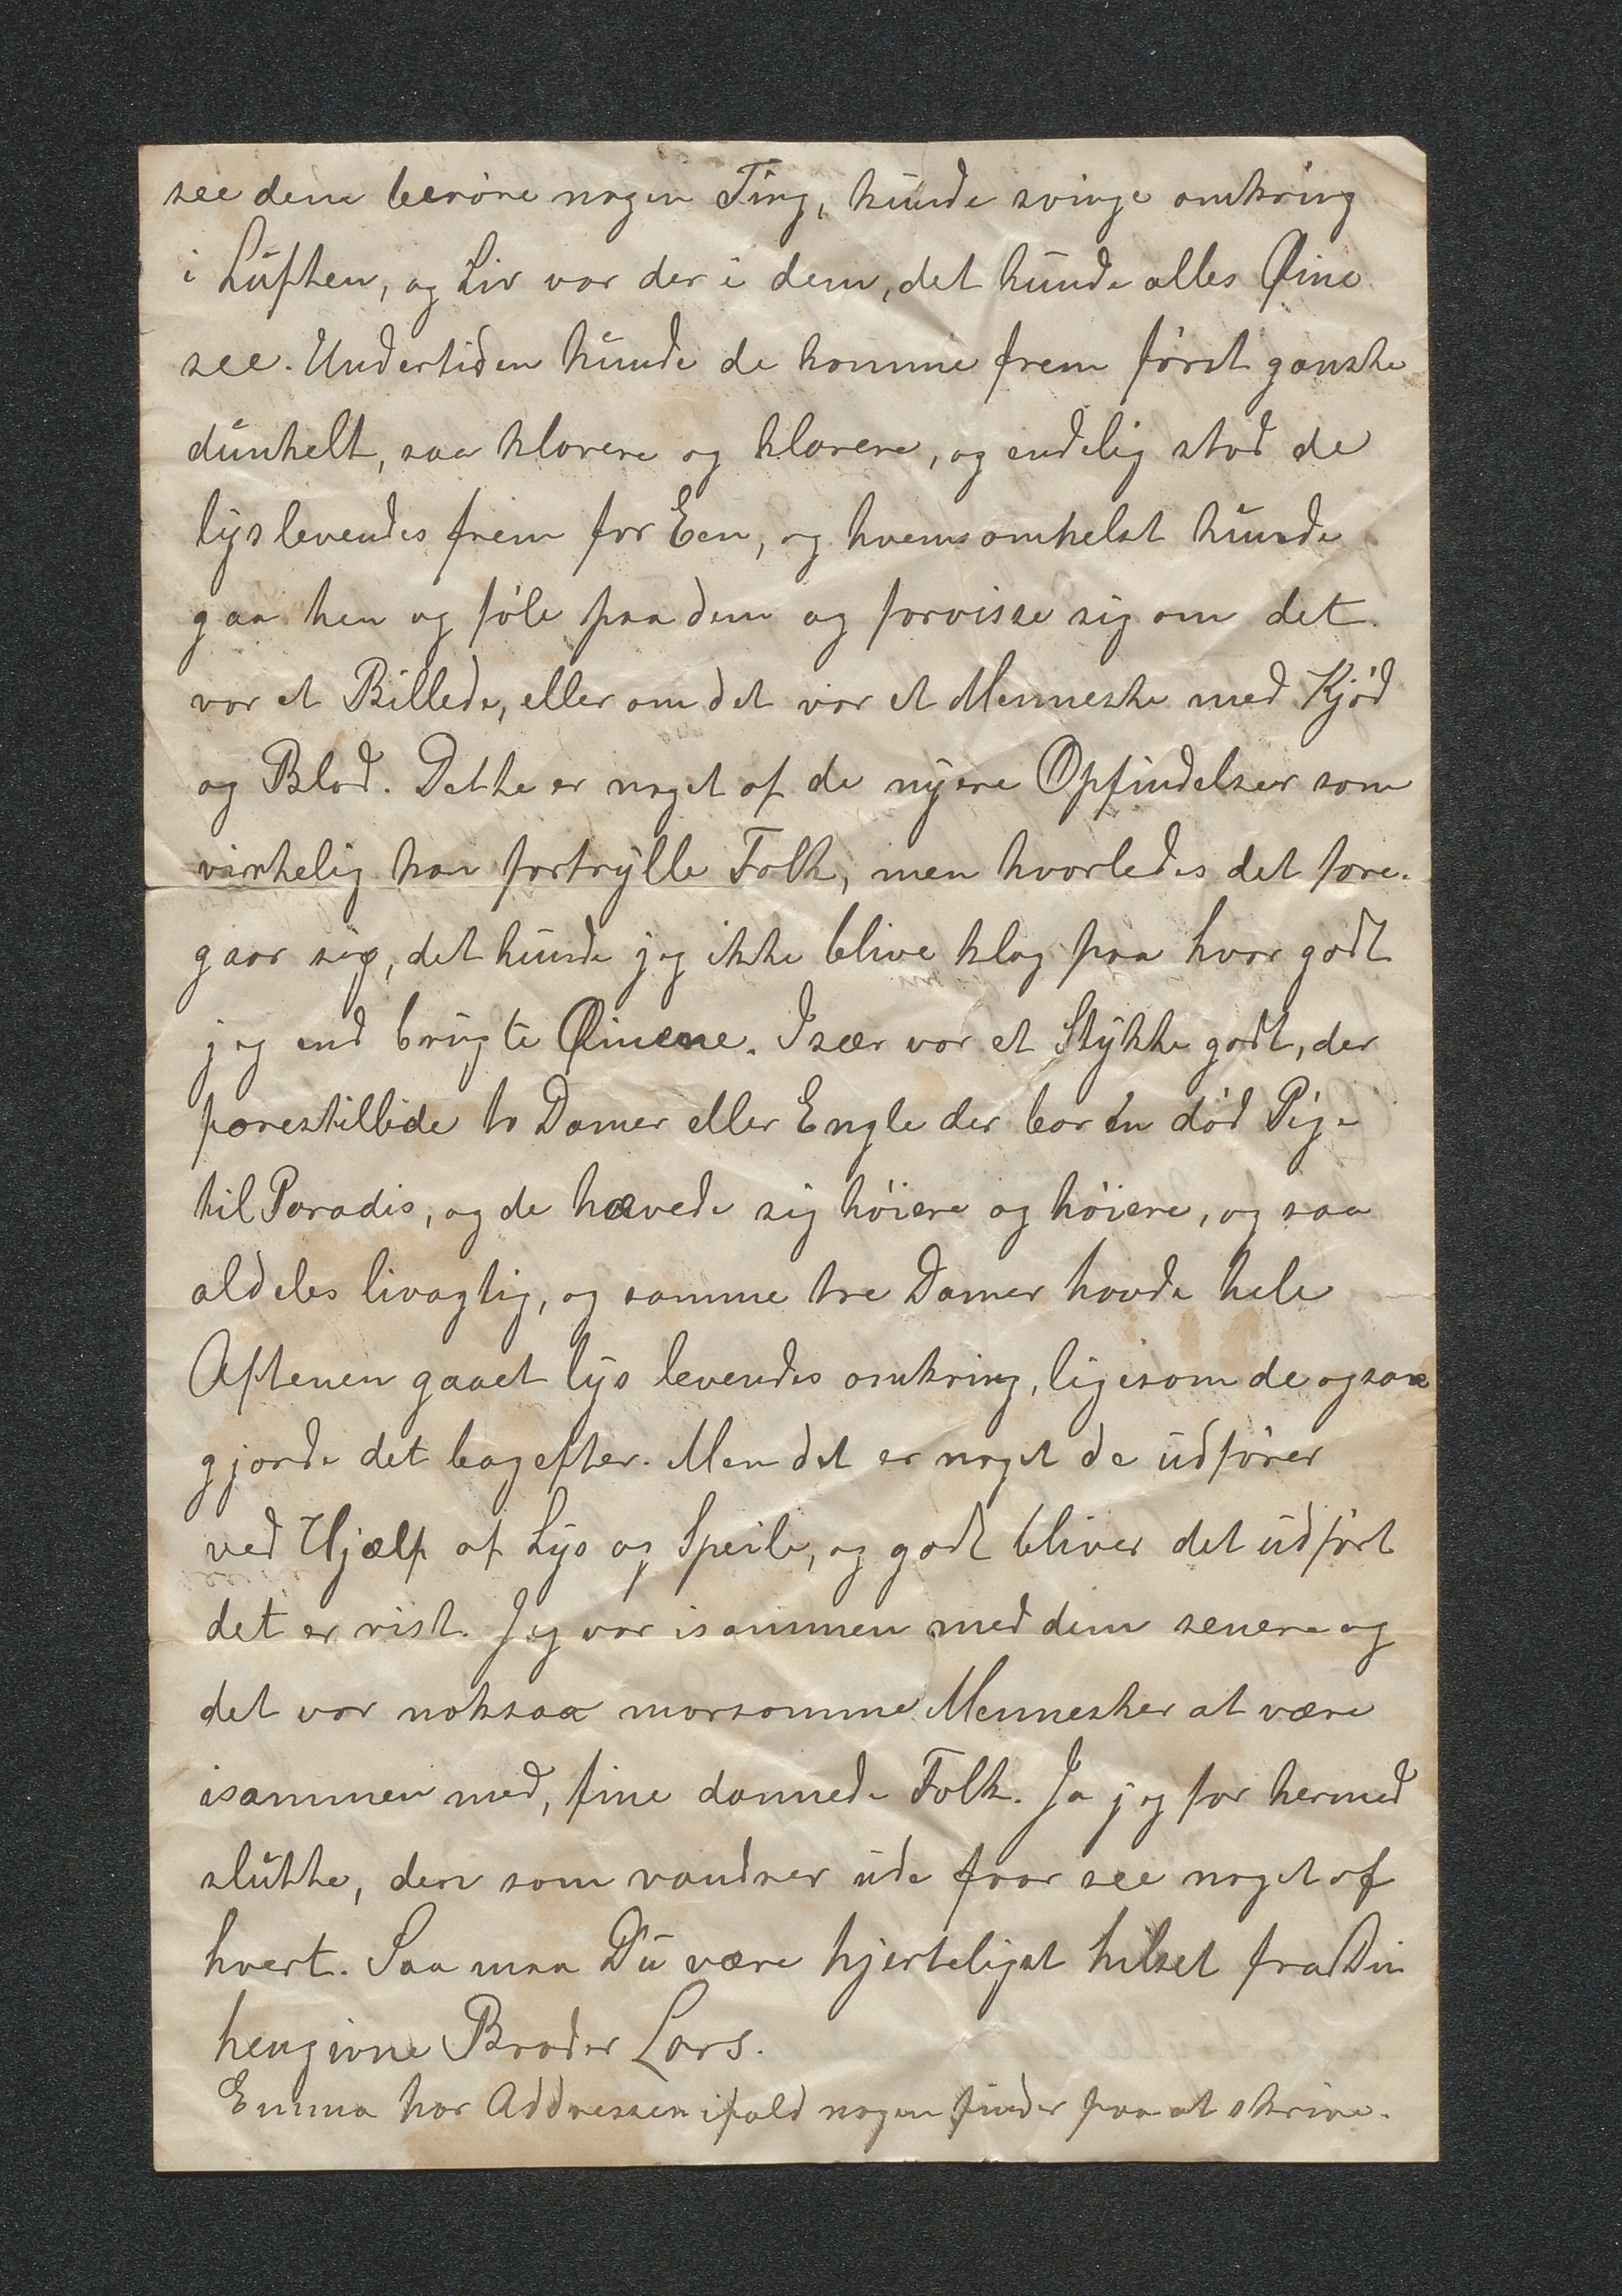 see dem berøre nogen Ting, kunde svinge omkring
i Luften, og Liv var der i dem, det kunde alles Øine
see. Undertiden kunde de komme frem først ganske
dunkelt, saa klarere og klarere, og endelig stod de
lyslevendes frem for Een, og hvemsomhelst kunde
gaa hen og føle paa dem og forvisse sig om det
var et Billede, eller om det var et Menneske med Kjød
og Blod. Dette er noget af de nyere Opfindelser som
virkelig kan fortrylle Folk, men hvorledes det fore-
gaar sig, det kunde jeg ikke blive klog paa hvor godt
jeg end brugte Øinene. Især var et Stykke godt, der
forestillede to Damer eller Engle der bar en død Pige
til Paradis, og de hævede sig høiere og høiere, og saa
aldeles livagtig, og samme tre Damer havde hele
Aftenen gaaet lys levendes omkring, ligesom de ogsaa
gjorde det bagefter. Men det er noget de udfører
ved Hjælp af Lys og Speile, og godt bliver det udført
det er vist. Jeg var isammen med dem senere og
det var noksaa morsomme Mennesker at være
isammen med, fine dannede Folk. Ja jeg for hermed
slutte, den som vandrer ude faar see noget af
hvert. Saa maa Du være hjerteligst hilset fra Din
hengivne Broder Lars.
Emma har Addressen ifald nogen finder paa at skrive.